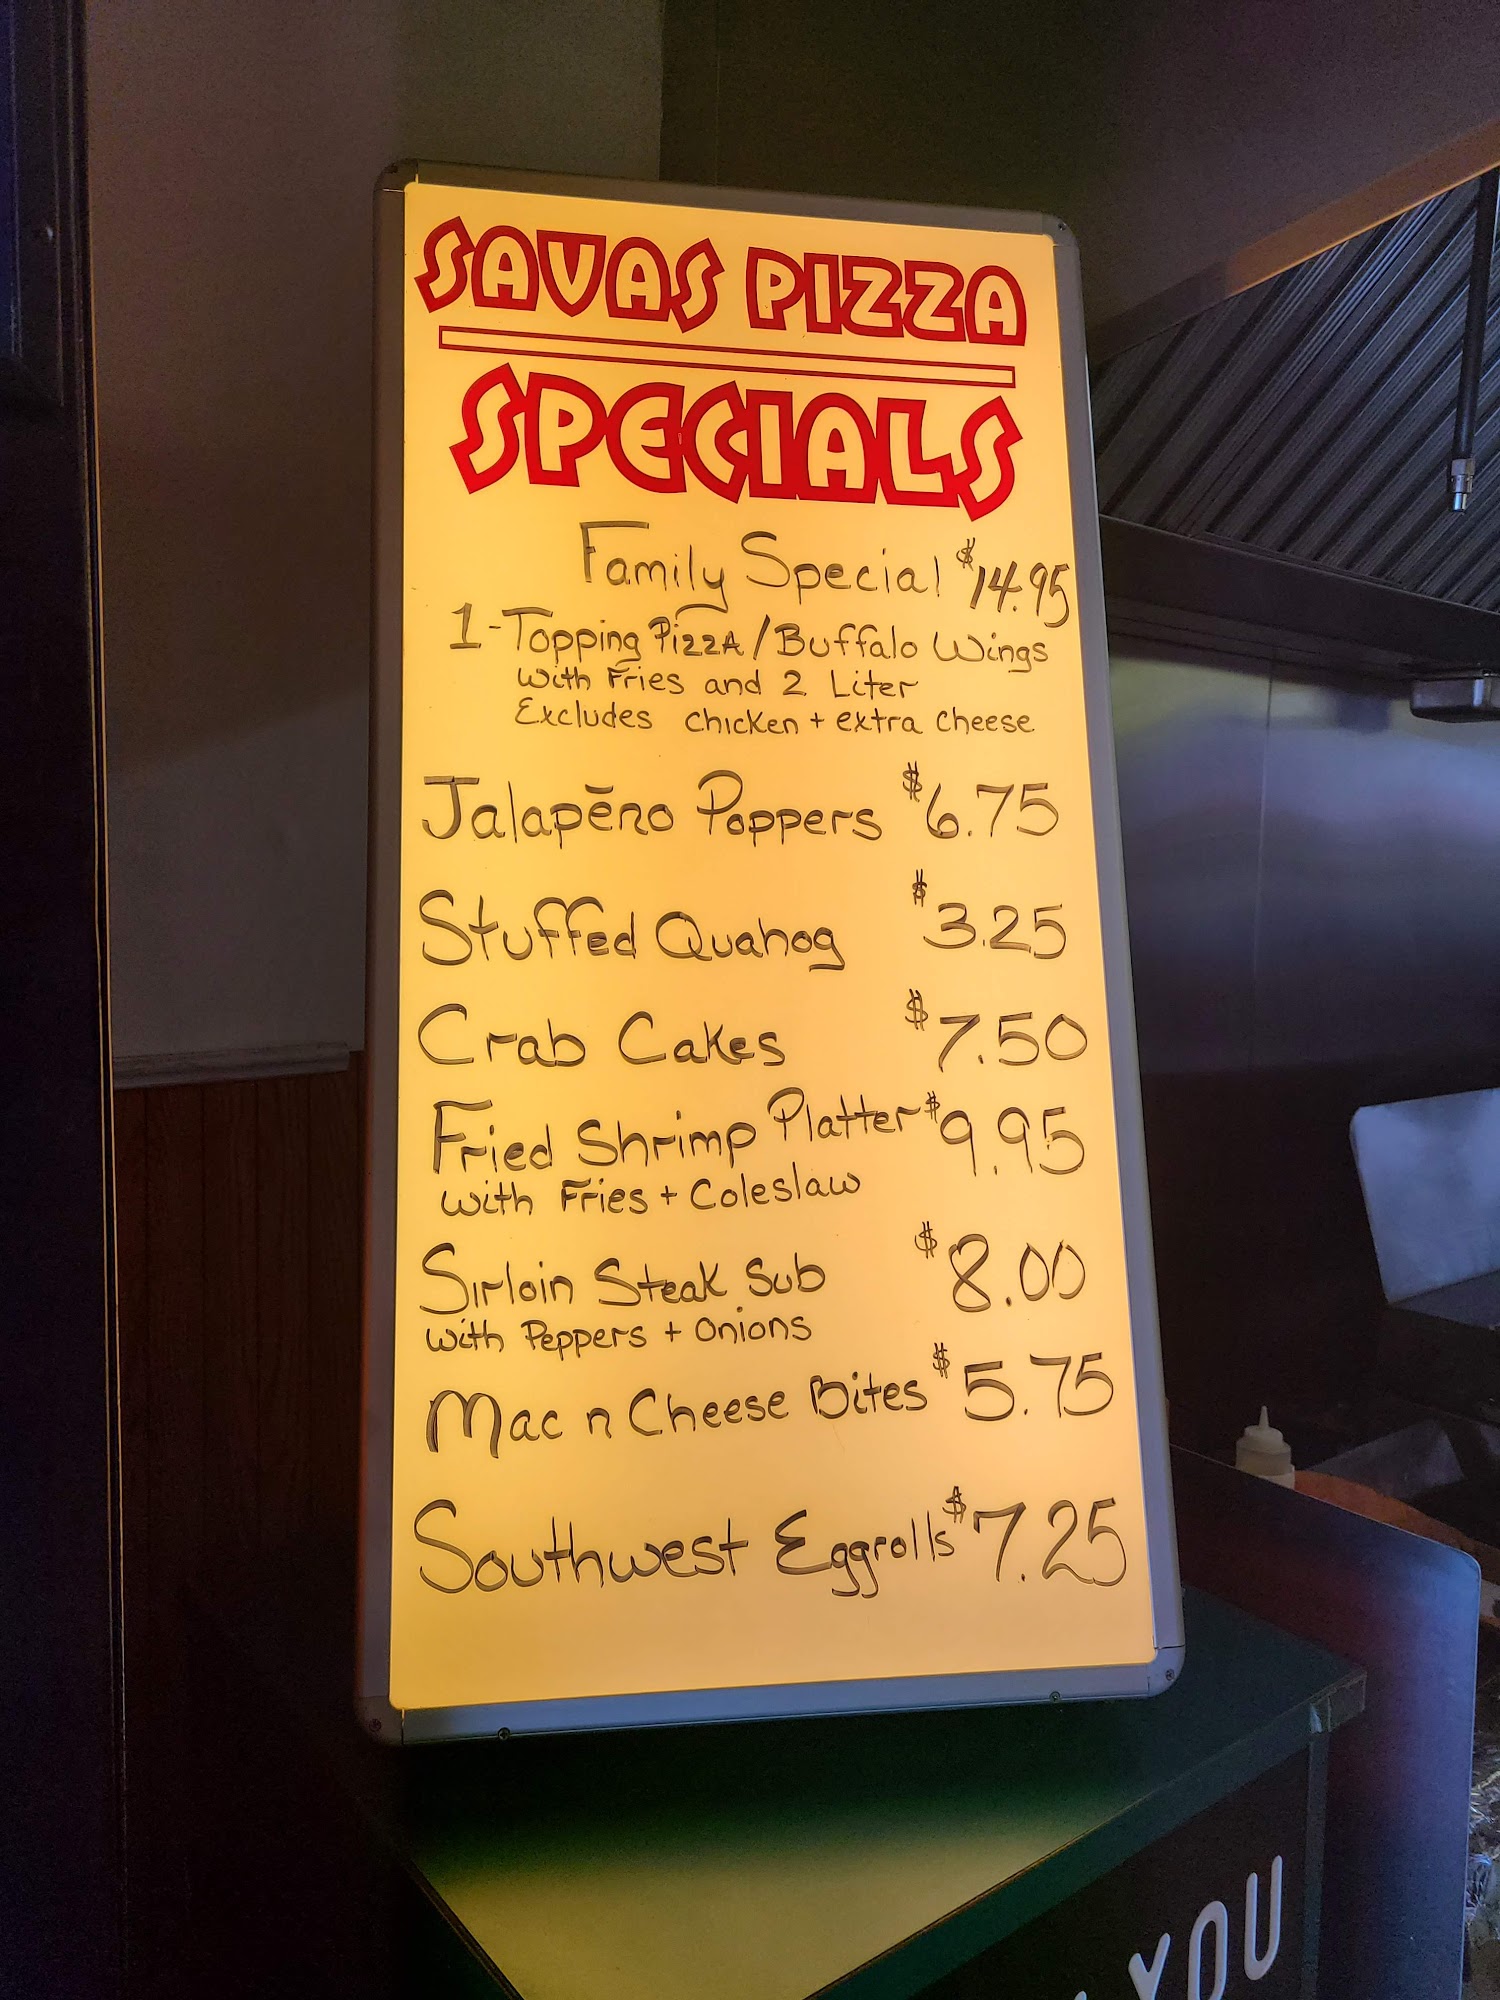 SAVAS PIZZA
SPECIALS
Family Special $14.95
1-Topping Pizza/Buffalo Wings
with Fries and 2 Liter
Excludes chicken + extra cheese
Jalapēno Poppers $6.75
Stuffed Quahog $3.25
Crab Cakes $7.50
Fried Shrimp Platter $9.95
with Fries + Coleslaw
Sirloin Steak Sub $8.00
with Peppers + Onions
Mac n Cheese Bites $5.75
Southwest Eggrolls $7.25
YOU